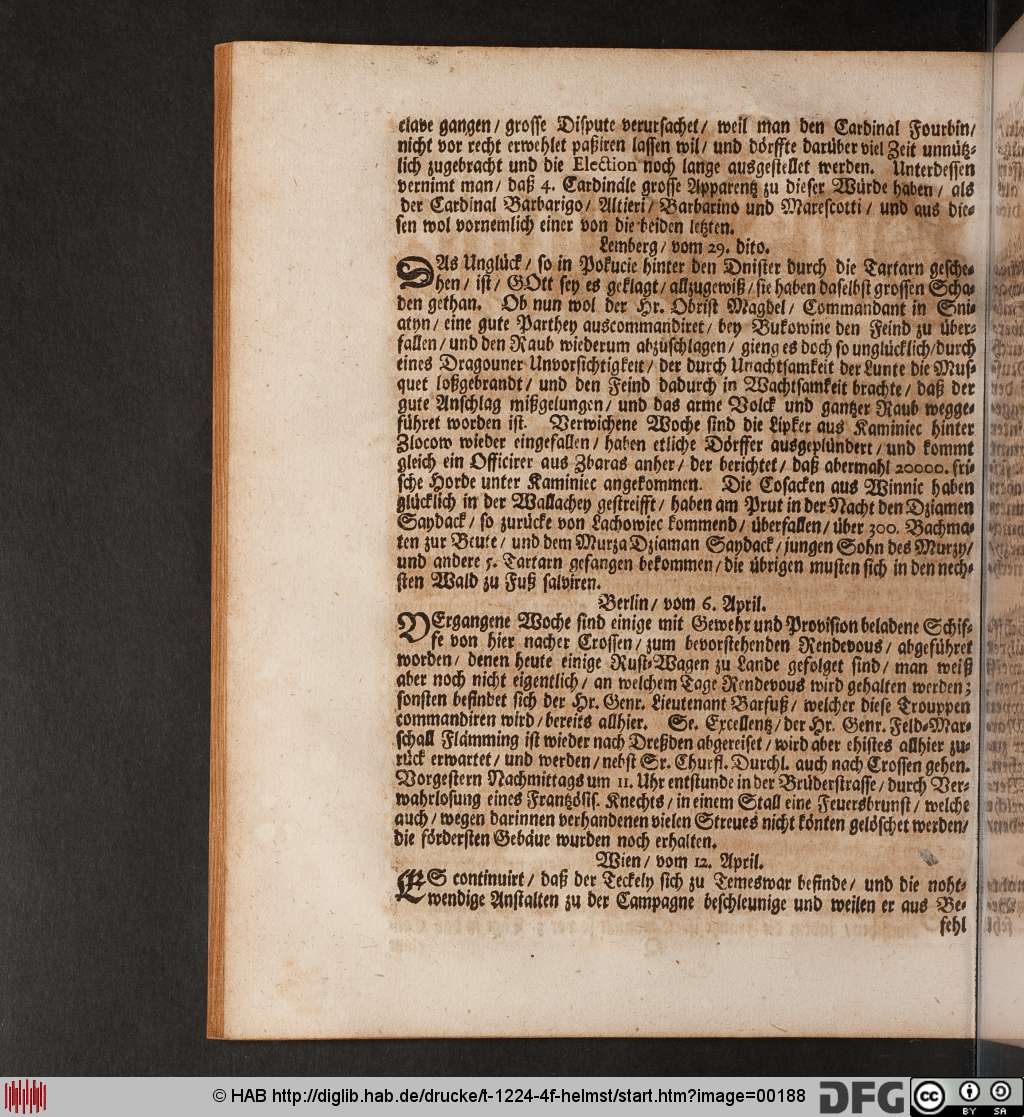 clave gangen / grosse Dispute verursachet / weil man den Cardinal Fourbin /
nicht vor recht erwehlet paßiren lassen wil / und dörffte darüber viel Zeit unnütz-
lich zugebracht und die Election noch lange ausgestellet werden. Unterdessen
vernimt man / daß 4. Cardinäle grosse Apparentz zu dieser Würde haben / als
der Cardinal Barbarigo / Altieri / Barbarino und Marescotti / und aus die-
sen wol vornemlich einer von die beiden letzten.
Lemberg / vom 29. dito.
DAs Unglück / so in Pokucie hinter den Dnister durch die Tartarn gesche-
hen / ist / GOtt sey es geklagt / allzugewiß / sie haben daselbst grossen Scha-
den gethan. Ob nun wol der Hr. Obrist Magdel / Commandant in Sni-
atyn / eine gute Parthey auscommandiret / bey Bukowine den Feind zu über-
fallen / und den Raub wiederum abzuschlagen / gieng es doch so unglücklich / durch
eines Dragouner Unvorsichtigkeit / der durch Unachtsamkeit der Lunte die Mus-
quet loßgebrandt / und den Feind dadurch in Wachtsamkeit brachte / daß der
gute Anschlag mißgelungen / und das arme Volck und gantzer Raub wegge-
führet worden ist. Verwichene Woche sind die Lipker aus Kaminiec hinter
Zlocow wieder eingefallen / haben etliche Dörffer ausgeplündert / und kommt
gleich ein Officirer aus Zbaras anher / der berichtet / daß abermahl 20000. fri-
sche Horde unter Kaminiec angekommen. Die Cosacken aus Winnic haben
glücklich in der Wallachey gestreifft / haben am Prut in der Nacht den Dziamen
Sayback / so zurücke von Lachowiec kommend / überfallen / über 300. Bachma-
ten zur Beute / und dem Murza Dziaman Sayback / jungen Sohn des Murzy /
und andere 5. Tartarn gefangen bekommen / die übrigen musten sich in den nech-
sten Wald zu Fuß salviren.
Berlin / vom 6. April.
VErgangene Woche sind einige mit Gewehr und Provision beladene Schif-
fe von hier nacher Crossen / zum bevorstehenden Rendevous / abgeführet
worden / denen heute einige Rust-Wagen zu Lande gefolget sind / man weiß
aber noch nicht eigentlich / an welchem Tage Rendevous wird gehalten werden;
sonsten befindet sich der Hr. Genr. Lieutenant Barfuß / welcher diese Trouppen
commandiren wird / bereits allhier. Se. Excellentz / der Hr. Genr. Feld-Mar-
schall Flämming ist wieder nach Dreßden abgereiset / wird aber ehistes allhier zu-
rück erwartet / und werden / nebst Sr. Churfl. Durchl. auch nach Crossen gehen.
Vorgestern Nachmittags um 11. Uhr entstunde in der Brüderstrasse / durch Ver-
wahrlosung eines Frantzösis. Knechts / in einem Stall eine Feuersbrunst / welche
auch / wegen darinnen verhandenen vielen Streues nicht könten gelöschet werden /
die fördersten Gebäue wurden noch erhalten.
Wien / vom 12. April.
ES continuirt / daß der Teckely sich zu Temeswar befinde / und die noht-
wendige Anstalten zu der Campagne beschleunige und weilen er aus Be-
fehl
© HAB http://diglib.hab.de/drucke/t-1224-4f-helmst/start.htm?image=00188
DFG
cc
BY SA